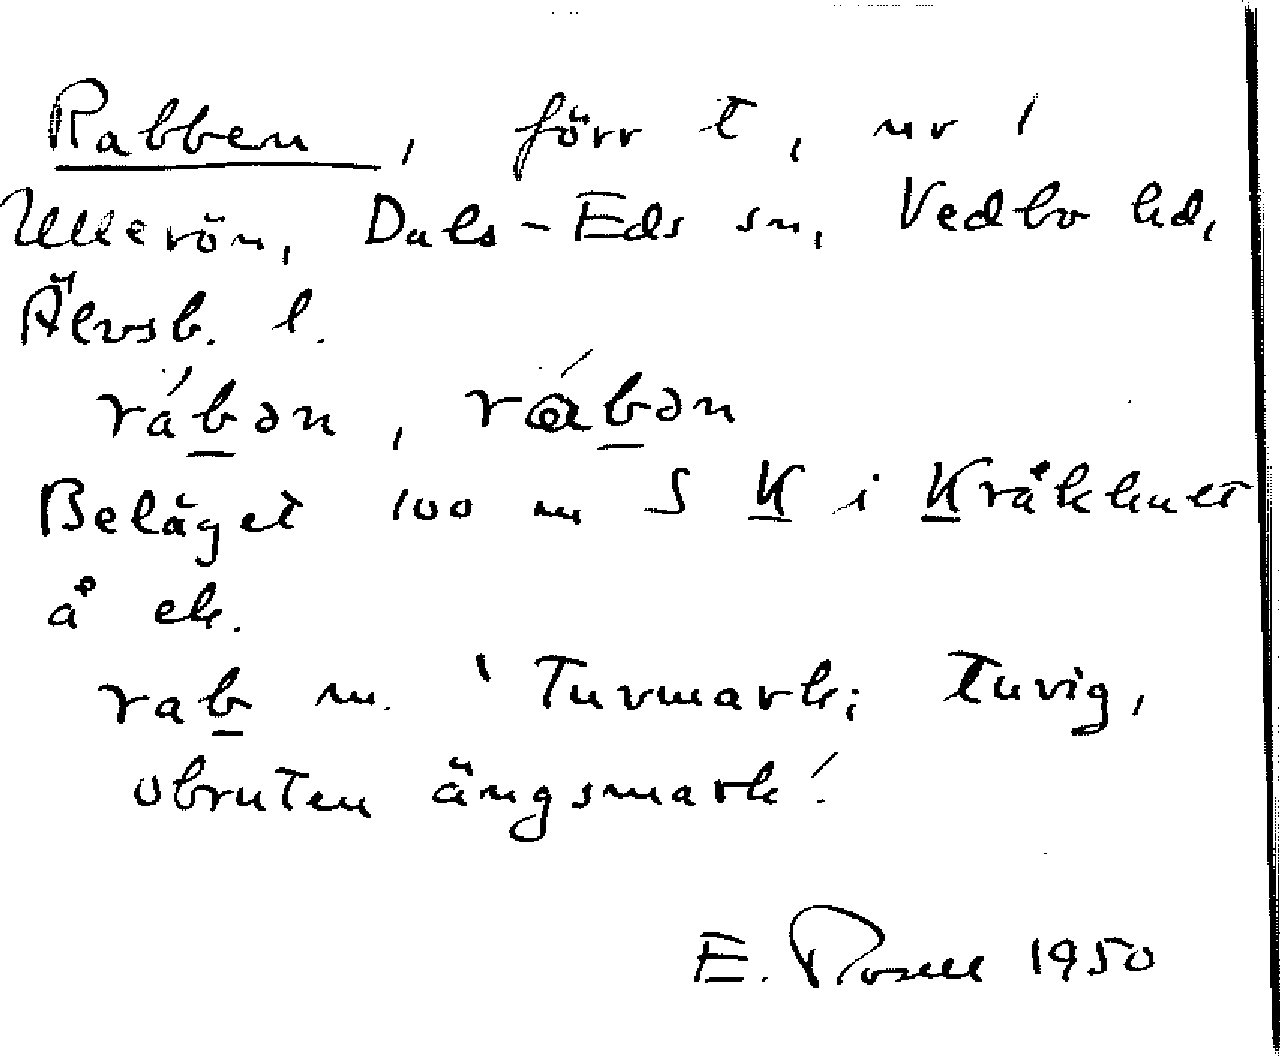 Rabben, förr t, nr 1
Ullerön, Dals-Eds sn, Vedbo hd,
Älvsb. l.
rábən, rábən
Beläget 100 m S K i Kråkhult
å ek.
rab m. 'Tuvmark; tuvig,
obruten ängsmark'.
E. Rosell 1950